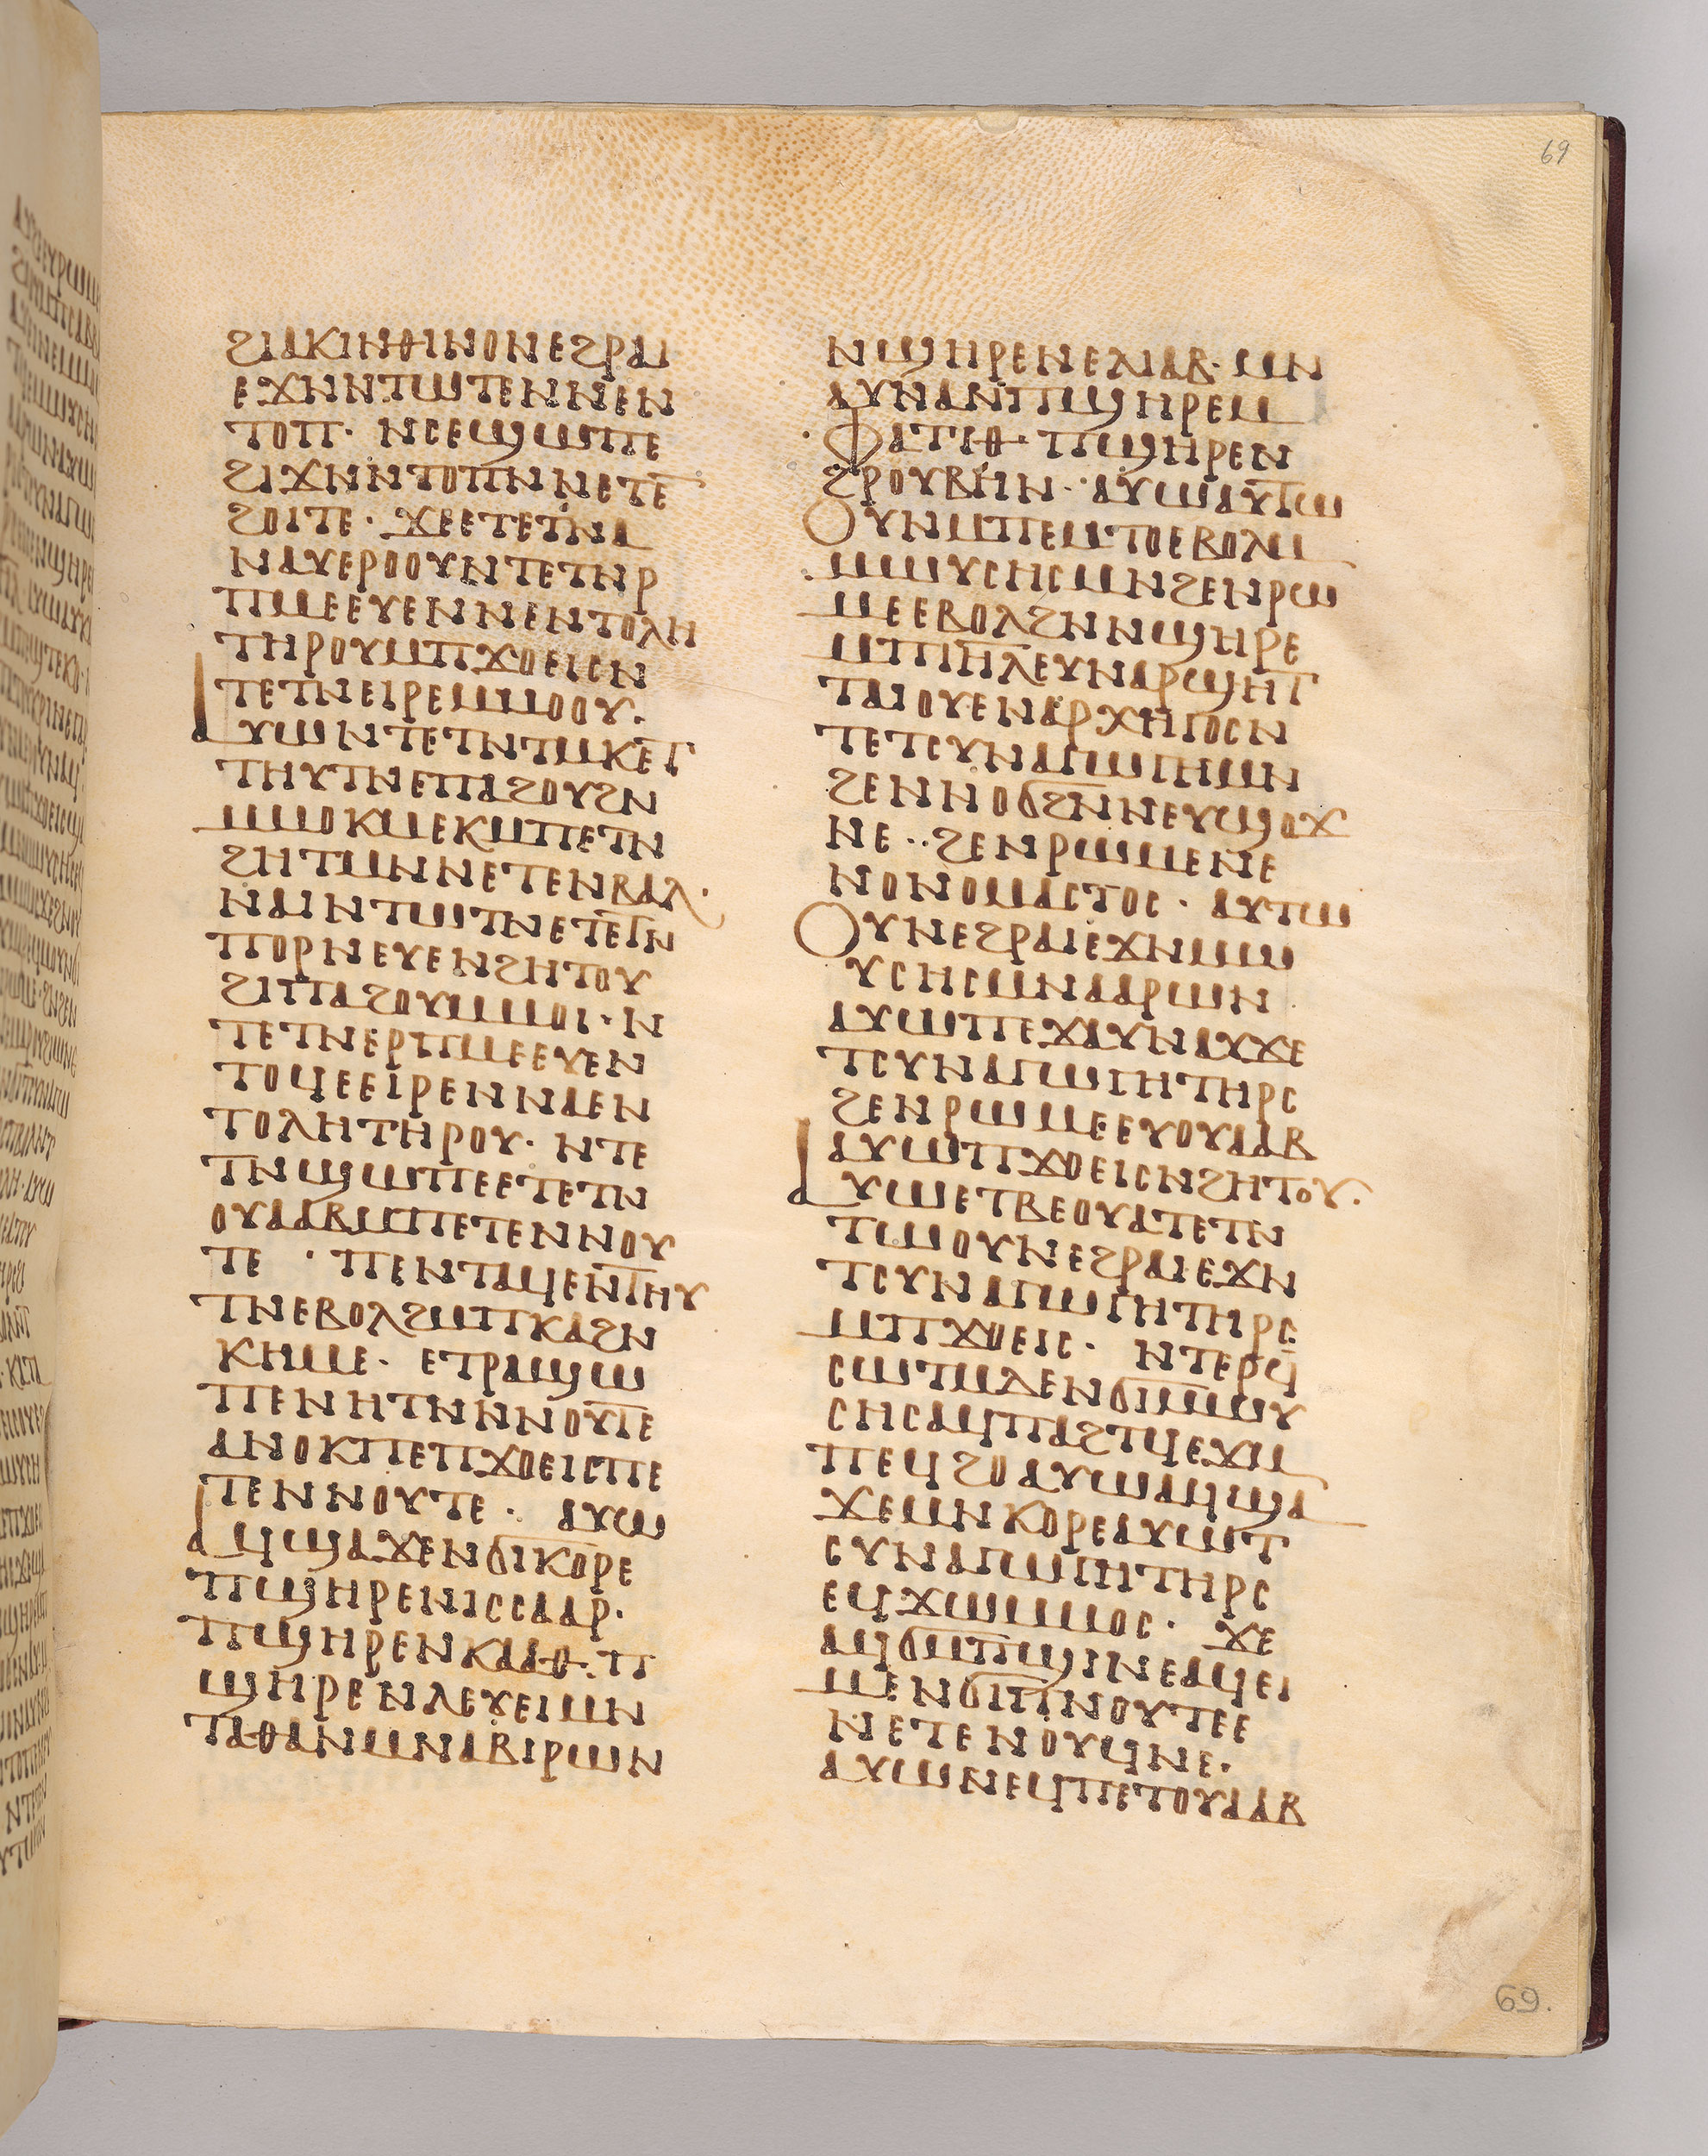 69
ϩⲓⲁⲕⲓⲛⲑⲓⲛⲟⲛⲉϩⲣⲁⲓ
ⲉϫⲛⲛⲧⲱⲧⲉⲛⲛⲉⲛ
ⲧⲟⲡ· ⲛⲥⲉϣⲱⲡⲉ
ϩⲓϫⲛⲛⲧⲟⲡⲛⲛⲉⲧⲉ
ϩⲟⲓⲧⲉ· ϫⲉⲉⲧⲉⲧⲛⲁ
ⲛⲁⲩⲉⲣⲟⲟⲩⲛⲧⲉⲧⲛⲣ
ⲡⲙⲉⲉⲩⲉⲛⲛⲉⲛⲧⲟⲗⲏ
ⲧⲏⲣⲟⲩⲙⲡϫⲟⲉⲓⲥⲛ
ⲧⲉⲧⲛⲉⲓⲣⲉⲙⲙⲟⲟⲩ·
ⲁⲩⲱⲛⲧⲉⲧⲛⲧⲙⲕⲉⲧ
ⲧⲏⲩⲧⲛⲉⲡⲁϩⲟⲩϩⲛ
ⲙⲙⲟⲕⲙⲉⲕⲙⲡⲉⲧⲛ
ϩⲏⲧⲙⲛⲛⲉⲧⲉⲛⲃⲁⲗ·
ⲛⲁⲓⲛⲧⲱⲧⲛⲉⲧⲉⲧⲛ
ⲡⲟⲣⲛⲉⲩⲉⲛϩⲏⲧⲟⲩ
ϩⲓⲡⲁϩⲟⲩⲙⲙⲟⲓ· ⲛ
ⲧⲉⲧⲛⲉⲣⲡⲙⲉⲉⲩⲉⲛ
ⲧⲟϥⲉⲉⲓⲣⲉⲛⲛⲁⲉⲛ
ⲧⲟⲗⲏⲧⲏⲣⲟⲩ· ⲛⲧⲉ
ⲧⲛϣⲱⲡⲉⲉⲧⲉⲧⲛ
ⲟⲩⲁⲁⲃⲙⲡⲉⲧⲉⲛⲛⲟⲩ
ⲧⲉ · ⲡⲉⲛⲧⲁϥⲉⲛⲧⲏⲩ
ⲧⲛⲉⲃⲟⲗϩⲙⲡⲕⲁϩⲛ
ⲕⲏⲙⲉ· ⲉⲧⲣⲁϣⲱ
ⲡⲉⲛⲏⲧⲛⲛⲛⲟⲩⲧⲉ
ⲁⲛⲟⲕⲡⲉⲡϫⲟⲉⲓⲥⲡⲉ
ⲧⲉⲛⲛⲟⲩⲧⲉ· ⲁⲩⲱ
ⲁϥϣⲁϫⲉⲛϭⲓⲕⲟⲣⲉ
ⲡϣⲏⲣⲉⲛⲓⲥⲥⲁⲁⲣ·
ⲡϣⲏⲣⲉⲛⲕⲁⲁⲑ· ⲡ
ϣⲏⲣⲉⲛⲗⲉⲩⲉⲓⲙⲛ
ⲧⲁⲑⲁⲛⲙⲛⲁⲃⲓⲣⲱⲛ
ⲛϣⲏⲣⲉⲛⲉⲗⲓⲁⲃ· ⲙⲛ
ⲁⲩⲛⲁⲛⲡϣⲏⲣⲉⲙ
ⲫⲁⲧⲉⲑ· ⲡϣⲏⲣⲉⲛ
ϩⲣⲟⲩⲃⲏⲛ· ⲁⲩⲱⲁⲩⲧⲱ
ⲟⲩⲛⲙⲡⲉⲙⲧⲟⲉⲃⲟⲗⲙ
ⲙⲱⲩⲥⲏⲥⲙⲛϩⲉⲛⲣⲱ
ⲙⲉⲉⲃⲟⲗϩⲛⲛϣⲏⲣⲉ
ⲙⲡⲓⲏⲗⲉⲩⲛⲁⲣϣⲏⲧ
ⲧⲁⲓⲟⲩⲉⲛⲁⲣⲭⲏⲅⲟⲥⲛ
ⲧⲉⲧⲥⲩⲛⲁⲅⲱⲅⲏⲙⲛ
ϩⲉⲛⲛⲟϭϩⲛⲛⲉⲩϣⲟϫ
ⲛⲉ·· ϩⲉⲛⲣⲱⲙⲉⲛⲉ
ⲛⲟⲛⲟⲙⲁⲥⲧⲟⲥ· ⲁⲩⲧⲱ
ⲟⲩⲛⲉϩⲣⲁⲓⲉϫⲛⲙⲱ
ⲩⲥⲏⲥⲙⲛⲁⲁⲣⲱⲛ
ⲁⲩⲱⲡⲉϫⲁⲩⲛⲁⲩϫⲉ
ⲧⲥⲩⲛⲁⲅⲱⲅⲏⲧⲏⲣⲥ
ϩⲉⲛⲣⲱⲙⲉⲉⲩⲟⲩⲁⲁⲃ
ⲁⲩⲱⲡϫⲟⲉⲓⲥⲛϩⲏⲧⲟⲩ·
ⲁⲩⲱⲉⲧⲃⲉⲟⲩⲁⲧⲉⲧⲛ
ⲧⲱⲟⲩⲛⲉϩⲣⲁⲓⲉϫⲛ
ⲧⲥⲩⲛⲁⲅⲱⲅⲏⲧⲏⲣⲥ
ⲙⲡϫⲟⲉⲓⲥ· ⲛⲧⲉⲣϥ
ⲥⲱⲧⲙⲇⲉⲛϭⲓⲙⲱⲩ
ⲥⲏⲥⲁϥⲡⲁϩⲧϥⲉϫⲙ
ⲡⲉϥϩⲟⲁⲩⲱⲁϥϣⲁ
ϫⲉⲙⲛⲕⲟⲣⲉⲁⲩⲱⲧ
ⲥⲩⲛⲁⲅⲱⲅⲏⲧⲏⲣⲥ
ⲉϥϫⲱⲙⲙⲟⲥ· ϫⲉ
ⲁϥϭⲙⲡϣⲓⲛⲉⲁϥⲉⲓ
ⲙⲉⲛϭⲓⲡⲛⲟⲩⲧⲉⲉ
ⲛⲉⲧⲉⲛⲟⲩϥⲛⲉ·
ⲁⲩⲱⲛⲉϥⲡⲉⲧⲟⲩⲁⲁⲃ
69.